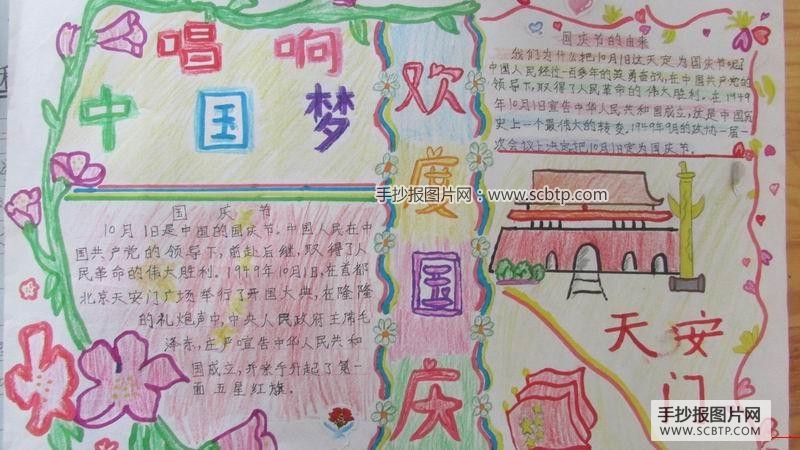 唱响
中国梦
国庆节
10月1日是中国的国庆节。中国人民在中
国共产党的领导下，前赴后继，取得了人
民革命的伟大胜利。1949年10月1日，在首都
北京天安门广场举行了开国大典，在隆隆
的礼炮声中，中央人民政府主席毛
泽东，庄严宣告中华人民共和
国成立，并亲手升起了第一
面五星红旗。
欢
度
国
庆
国庆节的由来
我们为什么把10月1日这天定为国庆节呢？
中国人民经过一百多年的英勇奋战，在中国共产党的
领导下，取得了人民革命的伟大胜利。在1949
年10月1日宣告中华人民共和国成立，这是中国历
史上一个最伟大的转变。1949年9月的政协一届一
次会议上决定把10月1日定为国庆节。
手抄报图片网：www.scbtp.com
天安
门
手抄报图片网
WWW.SCBTP.COM